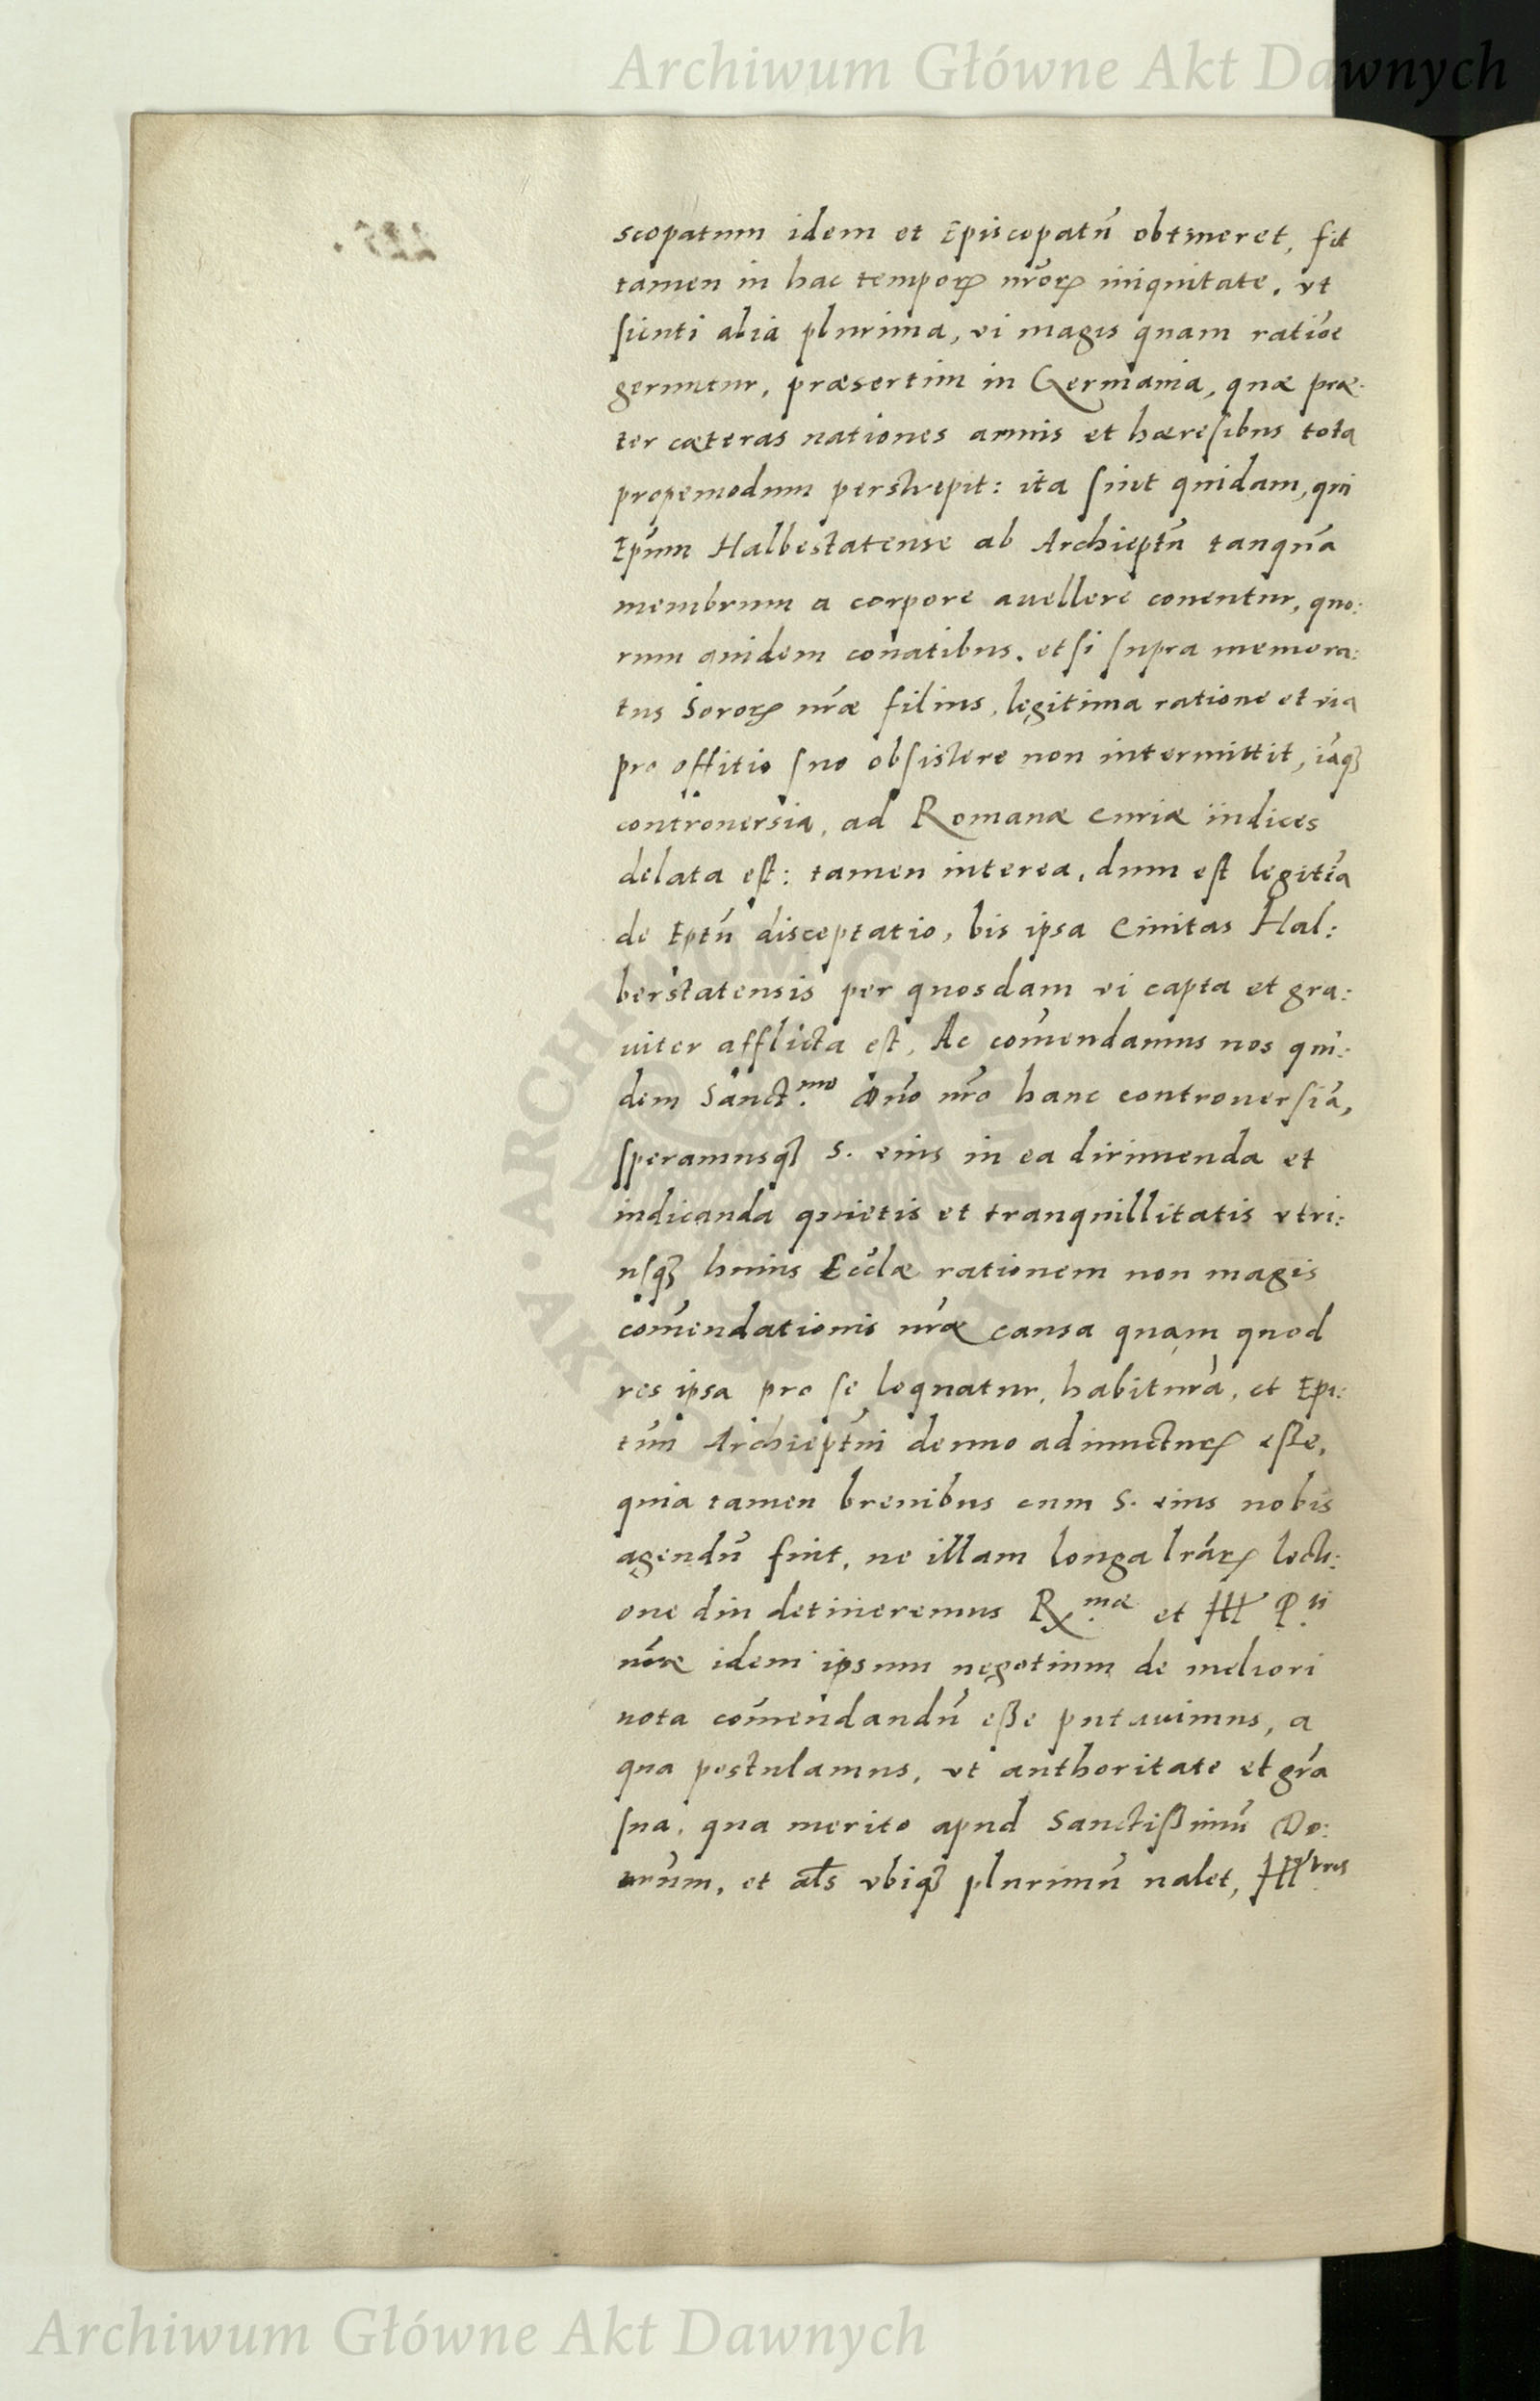 Archiwum Główne Akt Dawnych
scopatum idem et Episcopatū obtineret, fit
tamen in hac temporꝝ nr̄orꝝ iniquitate, vt
sicuti alia plurima, vi magis quam ratiōe
geruntur, præsertim in Germania, quæ præ-
ter cæteras nationes armis et hæresibus tota
propemodum perstrepit: ita sint quidam, qui
Ep̄um Halbestatense ab Archiep̄tū tanquā
membrum a corpore auellere conentur, quo:
rum quidem conatibus, etsi supra memora:
tus Sororꝭ nr̄æ filius, legitima ratione et via
pro offitio suo obsistere non intermittit, iāqꝫ
controuersia, ad Romanæ curiæ iudices
delata est: tamen interea, dum est legitīa
de Ep̄tū disceptatio, bis ipsa Ciuitas Hal:
berstatensis per quosdam vi capta et gra:
uiter afflicta est. Ac com̄endamus nos qui:
dem Sanct.mo Dn̄o nr̄o hanc controuersiā,
speramusqꝫ S. eius in ea dirimenda et
iudicanda quietis et tranquillitatis vtri:
usqꝫ huius Eccl̄æ rationem non magis
com̄endationis nr̄æ causa quam quod
res ipsa pro se loquatur, habiturā, et Epi:
tūm Archiep̄tui denuo adiuncturꝝ eße,
quia tamen breuibus cum S. eius nobis
agendū fuit, ne illam longa lr̄arꝝ lecti:
one diu detineremus R.mæ et Ill P.ti
vr̄æ idem ipsum negotium de meliori
nota com̄endandū eße putauimus, a
qua postulamus, vt authoritate et gr̄a
sua, qua merito apud Sanctißimū Do:
mīnum, et al̄s vbiqꝫ plurimū ualet, Ill
ARCHIWUM GŁÓWNE · AKT DAWNYCH ·
Archiwum Główne Akt Dawnych